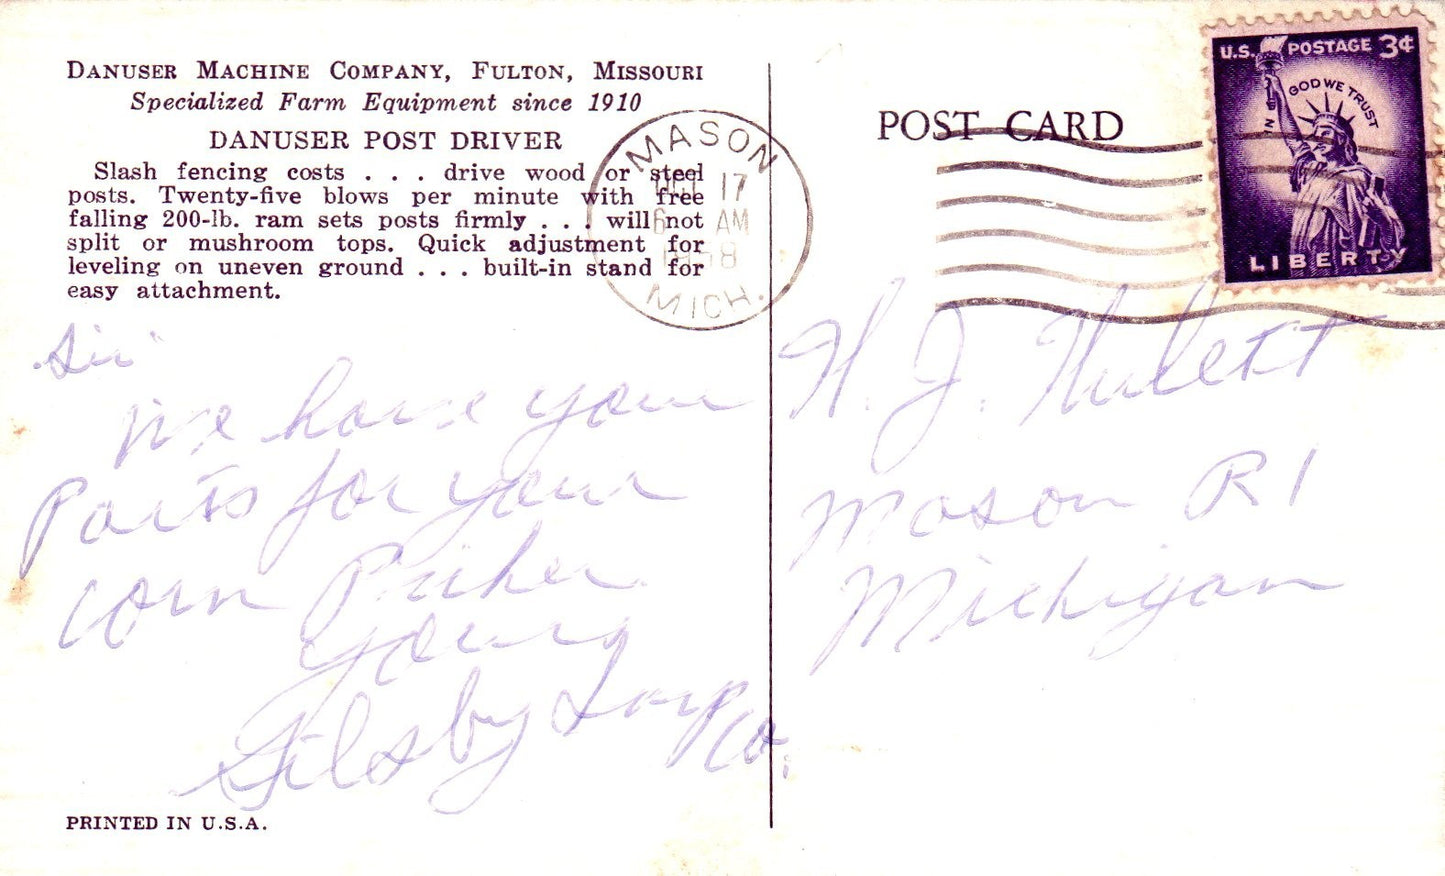 DANUSER MACHINE COMPANY, FULTON, MISSOURI
Specialized Farm Equipment since 1910
DANUSER POST DRIVER
Slash fencing costs . . . drive wood or steel
posts. Twenty-five blows per minute with free
falling 200-lb. ram sets posts firmly . . . will not
split or mushroom tops. Quick adjustment for
leveling on uneven ground . . . built-in stand for
easy attachment.
Sir
We have your
Parts for your
corn Picker
yours
Gilsby Co.
PRINTED IN U.S.A.
MASON
17
AM
1958
MICH.
POST CARD
U.S. POSTAGE 3¢
IN GOD WE TRUST
LIBERTY
H. J. Hulett
Mason R 1
Michigan